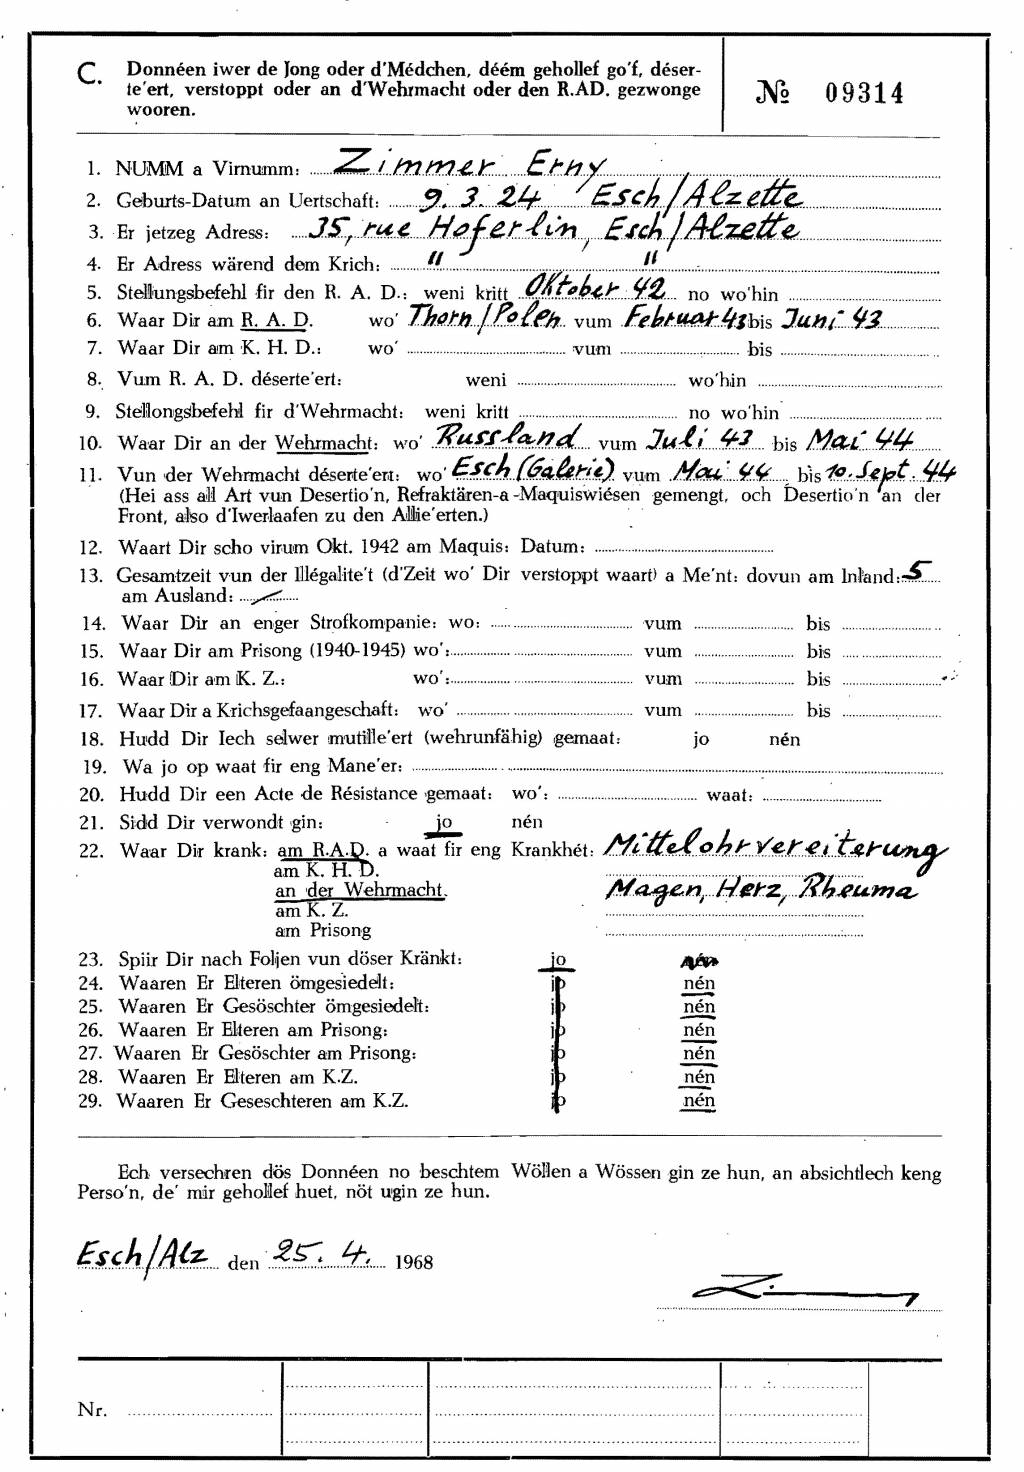 C. Donnéen iwer de Jong oder d'Médchen, déém gehollef go'f, déser-
te'ert, verstoppt oder an d'Wehrmacht oder den R.AD. gezwonge
wooren.
№ 09314
1. NUMM a Virnumm: Zimmer Erny
2. Geburts-Datum an Uertschaft: 9. 3. 24 Esch/Alzette
3. Er jetzeg Adress: 35, rue Hoferlin, Esch/Alzette
4. Er Adress wärend dem Krich: " "
5. Stellungsbefehl fir den R. A. D.: weni kritt Oktober 42 no wo'hin
6. Waar Dir am R. A. D. wo' Thorn/Polen vum Februar 43 bis Juni 43
7. Waar Dir am K. H. D.: wo' vum bis
8. Vum R. A. D. déserte'ert: weni wo'hin
9. Stellongsbefehl fir d'Wehrmacht: weni kritt no wo'hin
10. Waar Dir an der Wehrmacht: wo' Russland vum Juli 43 bis Mai 44
11. Vun der Wehrmacht déserte'ert: wo' Esch (Galerie) vum Mai 44 bis 10. Sept. 44
(Hei ass all Art vun Desertio'n, Refraktären-a -Maquiswiésen gemengt, och Desertio'n an der
Front, also d'Iwerlaafen zu den Allie'erten.)
12. Waart Dir scho virum Okt. 1942 am Maquis: Datum:
13. Gesamtzeit vun der Illégalite't (d'Zeit wo' Dir verstoppt waart) a Me'nt: dovun am Inland: 5
am Ausland: /
14. Waar Dir an enger Strofkompanie: wo: vum bis
15. Waar Dir am Prisong (1940-1945) wo': vum bis
16. Waar Dir am K. Z.: wo': vum bis
17. Waar Dir a Krichsgefaangeschaft: wo' vum bis
18. Hudd Dir Iech selwer mutille'ert (wehrunfähig) gemaat: jo nén
19. Wa jo op waat fir eng Mane'er:
20. Hudd Dir een Acte de Résistance gemaat: wo': waat:
21. Sidd Dir verwondt gin: jo nén
22. Waar Dir krank: am R.A.D. a waat fir eng Krankhét: Mittelohrvereiterung
am K. H. D.
an der Wehrmacht. Magen, Herz, Rheuma
am K. Z.
am Prisong
23. Spiir Dir nach Foljen vun döser Kränkt: jo nén
24. Waaren Er Elteren ömgesiedelt: jo nén
25. Waaren Er Gesöschter ömgesiedelt: jo nén
26. Waaren Er Elteren am Prisong: jo nén
27. Waaren Er Gesöschter am Prisong: jo nén
28. Waaren Er Elteren am K.Z. jo nén
29. Waaren Er Geseschteren am K.Z. jo nén
Ech versechren dös Donnéen no beschtem Wöllen a Wössen gin ze hun, an absichtlech keng
Perso'n, de' mir gehollef huet, nöt ugin ze hun.
Esch/Alz den 25. 4. 1968
Nr.